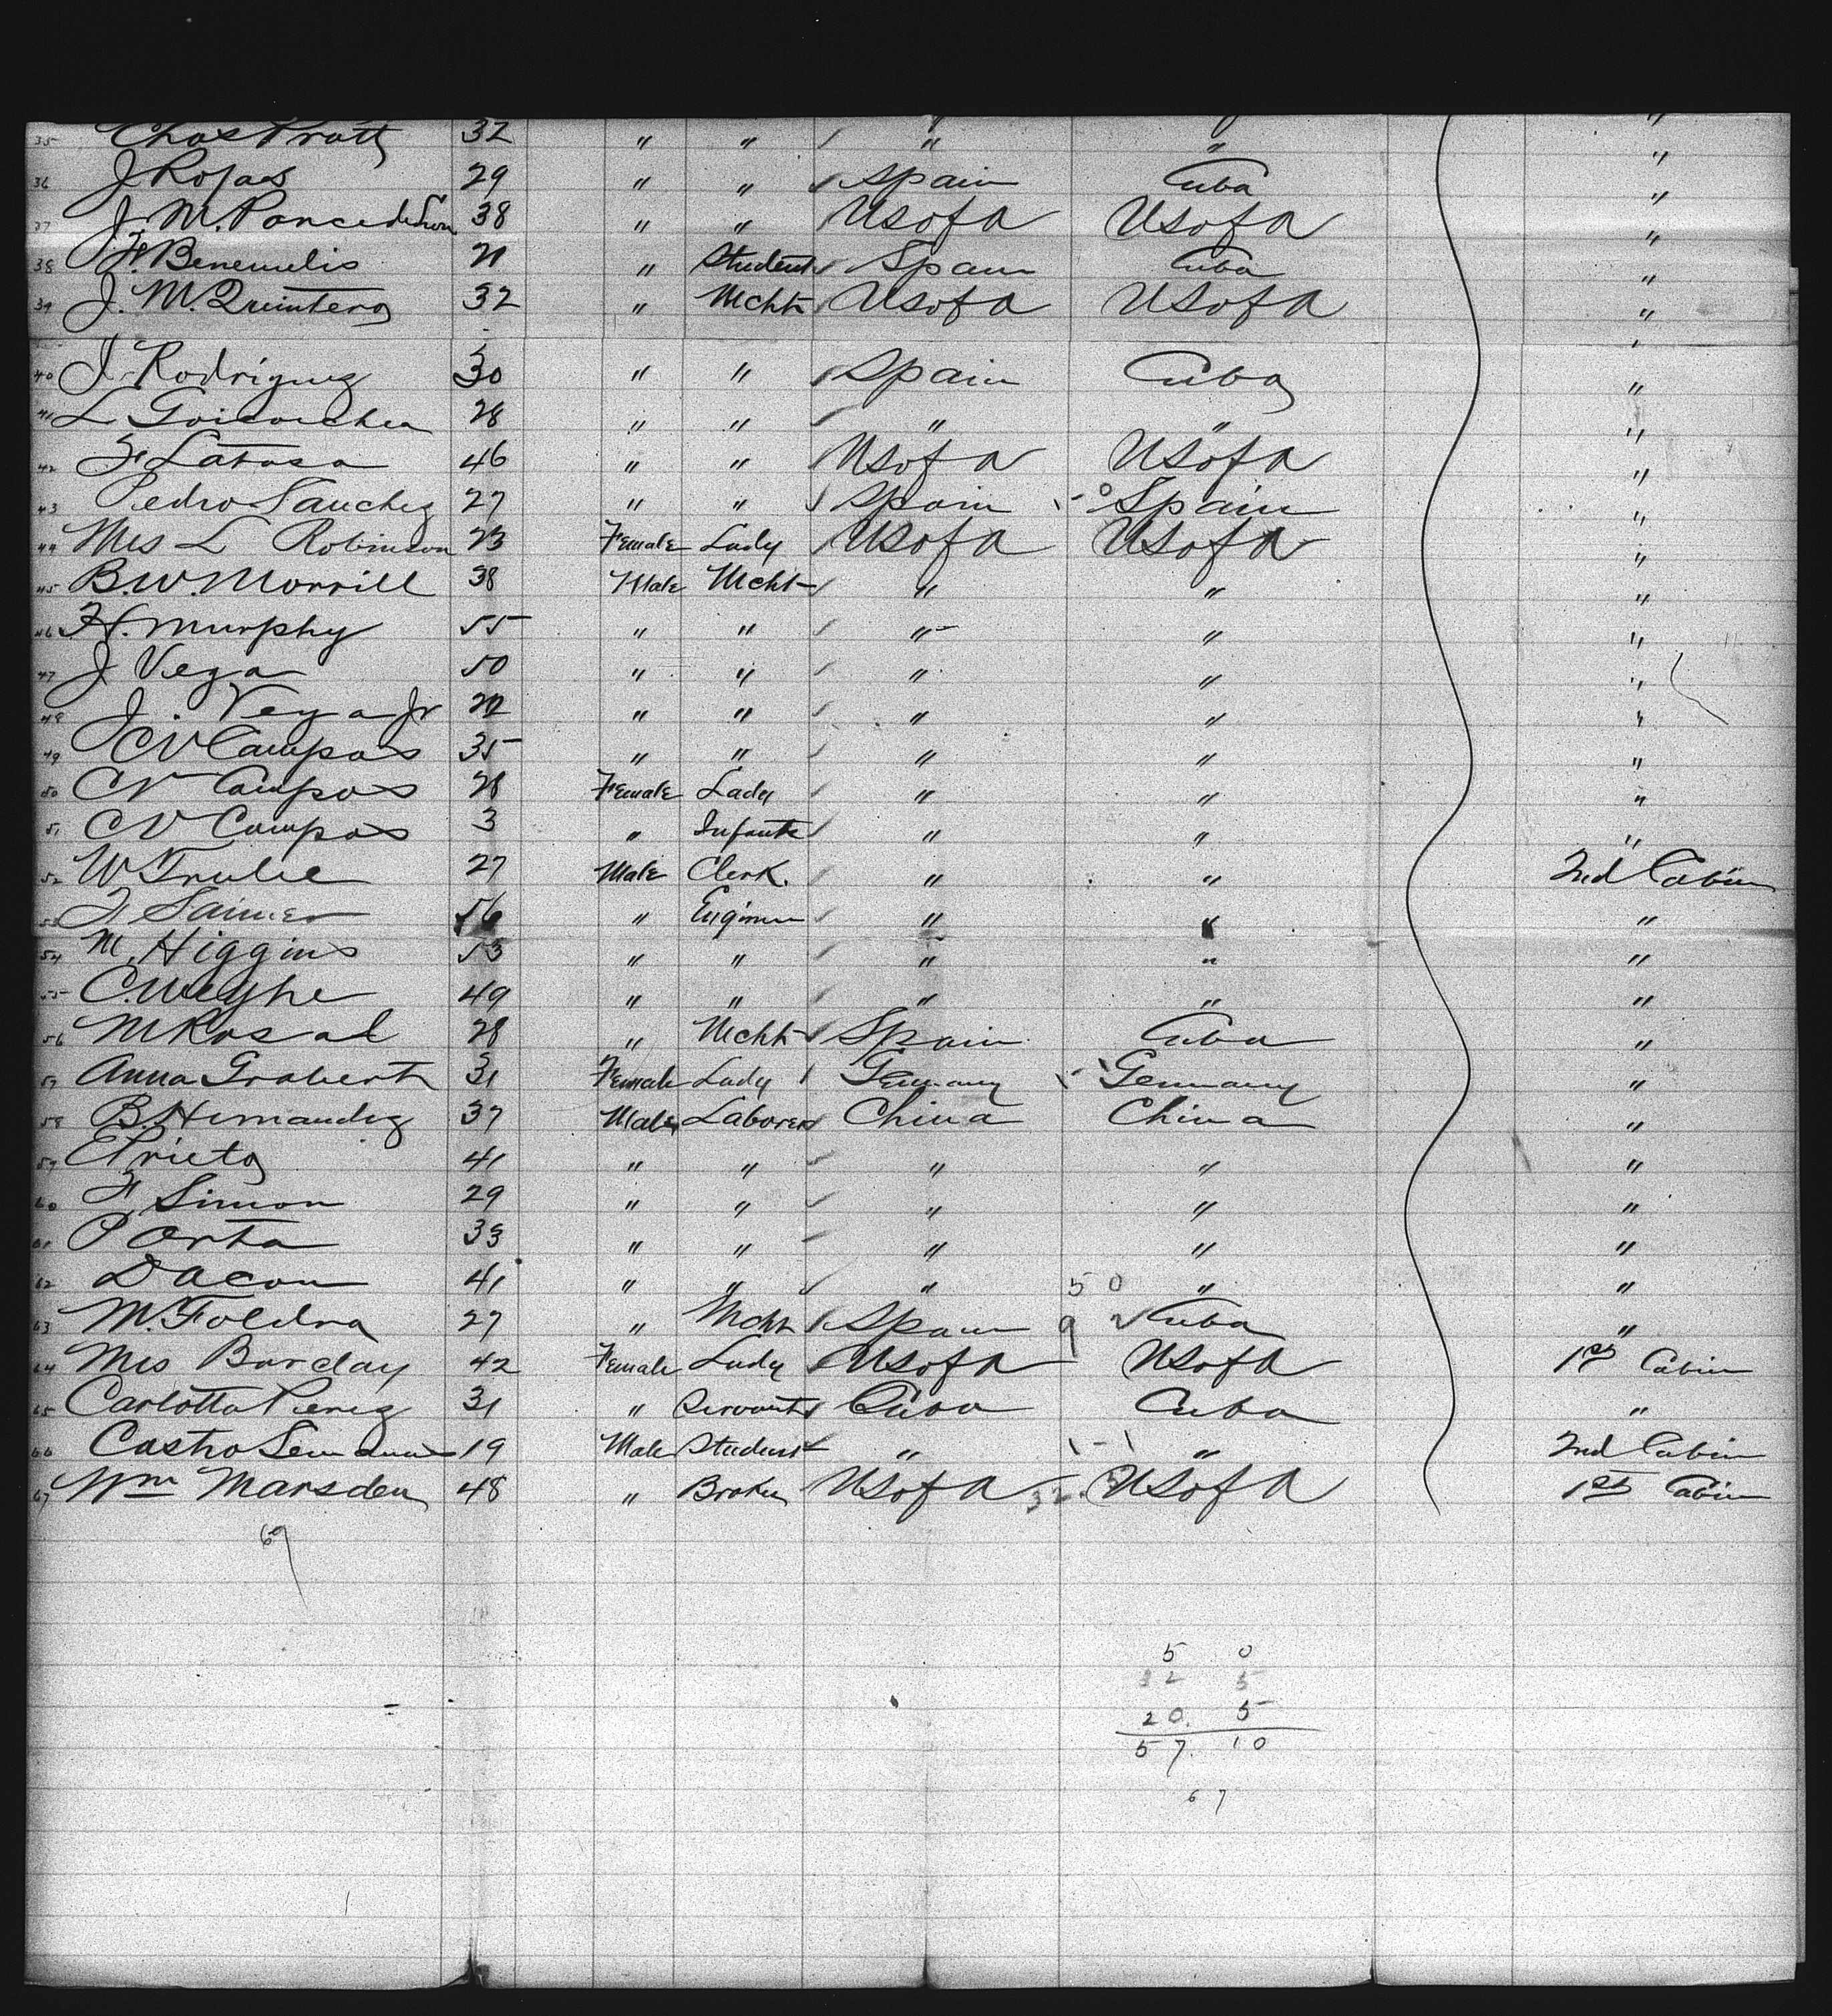 35 Chas Pratt 32 " " " " "
36 J Rojas 29 " " Spain Cuba "
37 J. M. Ponce de Leon 38 " " U S of A U S of A "
38 F. Benemelis 21 " Student Spain Cuba "
39 J. M. Quintero 32 " Mcht U S of A U S of A "
40 J. Rodriguez 30 " " Spain Cuba "
41 L Goicouchea 28 " " " " "
42 F Latasa 46 " " U S of A U S of A "
43 Pedro Sanchez 27 " " Spain Spain "
44 Mrs L Robinson 23 Female Lady U S of A U S of A "
45 B. W. Morrill 38 Male Mcht " " "
46 H. Murphy 55 " " " " "
47 J Vega 50 " " " " "
48 J. Vega Jr " " " " "
49 C V Campos 35 " " " " "
50 C V Campos 28 Female Lady " " "
51 C V Campos 3 " Infant " " "
52 W Trulie 27 Male Clerk. " " 2nd Cabin
53 56 " Engineer " " "
54 M. Higgins 53 " " " " "
55 C. Weyhe 49 " " " " "
56 M Rosal 28 " Mcht Spain Cuba "
57 Anna Grabert 31 Female Lady Germany Germany "
58 B. Hernandez 37 Male Laborer China China "
59 E Prieto 41 " " " " "
60 F Simon 29 " " " " "
61 P Orta 33 " " " " "
62 D Acon 41 " " " 5 0 " "
63 M. Foldra 27 " Mcht Spain 9 2 Cuba "
64 Mrs Barclay 42 Female Lady U S of A U S of A 1st Cabin
65 Carlotta Perez 31 " Servant Cuba Cuba "
66 Castro 19 Male Student " " 2nd Cabin
67 Wm Marsden 48 " Broker U S of A 32 U S of A 1st Cabin
5 0
32 5
20. 5
57. 10
67